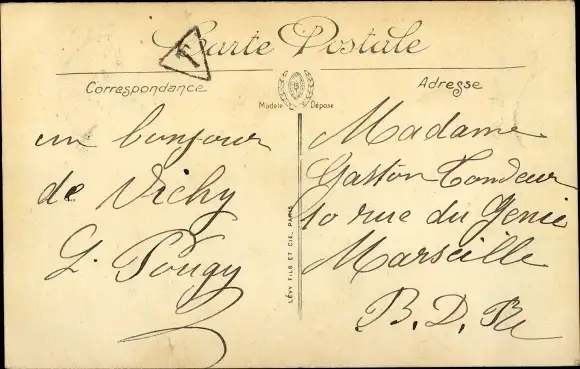 Carte Postale
T
Correspondance
Adresse
Modèle Déposé
un bonjour
de Vichy
G. Pougy
LÉVY FILS ET CIE, PARIS
Madame
Gaston Tondeur
10 rue du Genie
Marseille
B. D. Rh